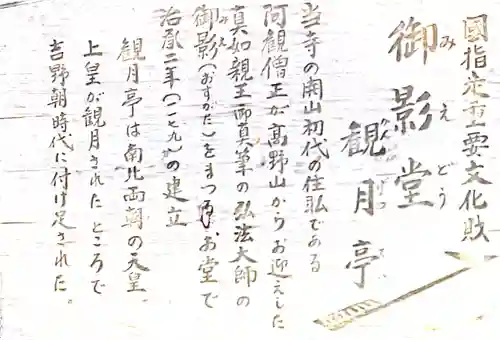 國指定重要文化財
御影堂
みえどう
観月亭
当寺の開山初代の住職である
阿観僧正が髙野山からお迎えした
真如親王御真筆の弘法大師の
御影(おすがた)をまつるお堂で
みえ
治承二年(一一七九)の建立
観月亭は南北両朝の天皇、
上皇が観月されたところで
吉野朝時代に付け足された。